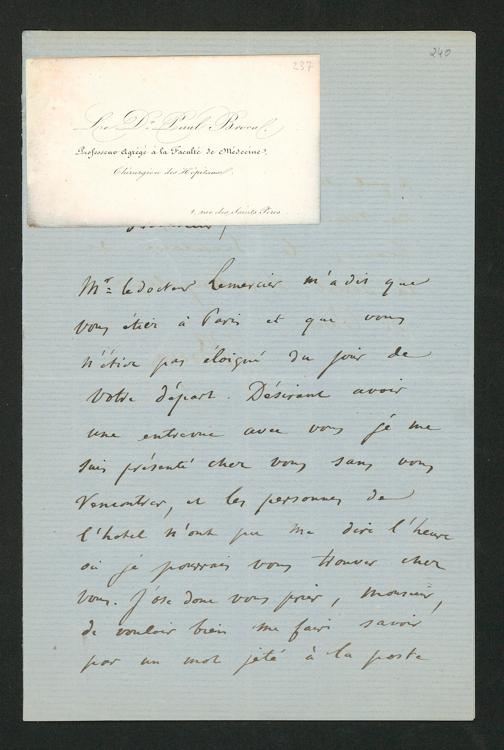 240
237
Le Dr. Paul Broca.
Professeur Agrégé à la Faculté de Médecine.
Chirurgien des Hôpitaux.
1, rue des Saints Pères
Monsieur,
Mr le docteur Lemercier m'a dit que
vous étiez à Paris et que vous
n'étiez pas éloigné du jour de
votre départ. Désirant avoir
une entrevue avec vous je me
suis présenté chez vous sans vous
rencontrer, et les personnes de
l'hotel n'ont pu me dire l'heure
où je pourrais vous trouver chez
vous. J'ose donc vous prier, monsieur,
de vouloir bien me faire savoir
par un mot jeté à la poste